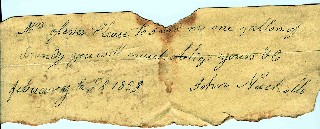 Mr Please to send me one gallon of
brandy you will much oblige yours &C
february the 28 1828 John Nuckolls